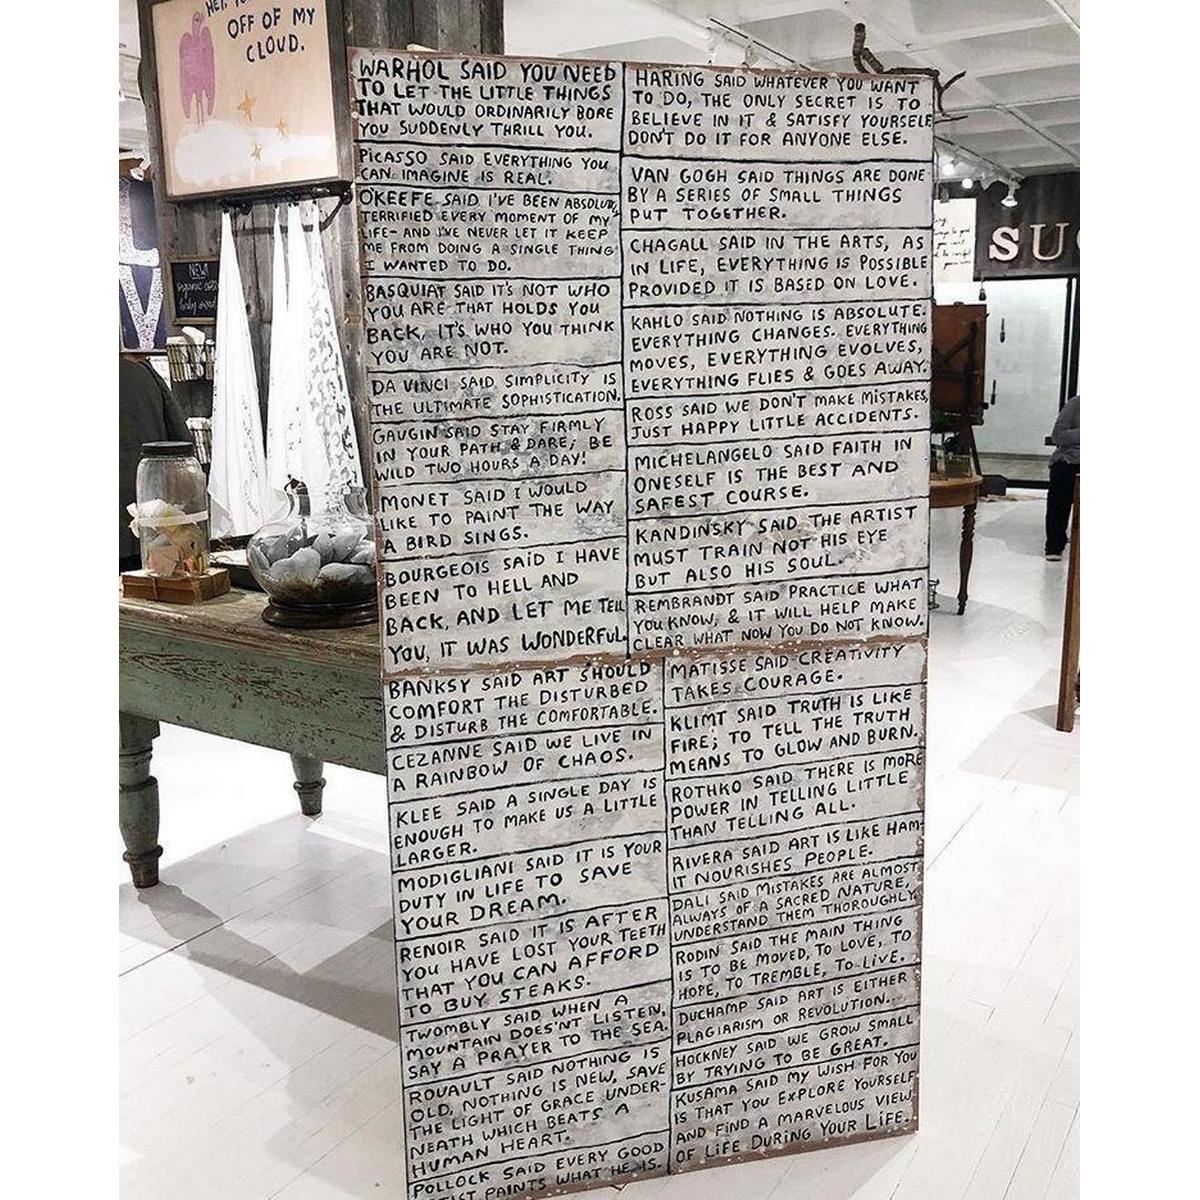 OFF OF MY
CLOUD.
NEW!
SU
WARHOL SAID YOU NEED
TO LET THE LITTLE THINGS
THAT WOULD ORDINARILY BORE
YOU SUDDENLY THRILL YOU.
PICASSO SAID EVERYTHING YOU
CAN IMAGINE IS REAL.
O'KEEFE SAID I'VE BEEN ABSOLUTLY
TERRIFIED EVERY MOMENT OF MY
LIFE- AND I'VE NEVER LET IT KEEP
ME FROM DOING A SINGLE THING
I WANTED TO DO.
BASQUIAT SAID IT'S NOT WHO
YOU ARE THAT HOLDS YOU
BACK, IT'S WHO YOU THINK
YOU ARE NOT.
DA VINCI SAID SIMPLICITY IS
THE ULTIMATE SOPHISTICATION.
GAUGIN SAID STAY FIRMLY
IN YOUR PATH & DARE; BE
WILD TWO HOURS A DAY!
MONET SAID I WOULD
LIKE TO PAINT THE WAY
A BIRD SINGS.
BOURGEOIS SAID I HAVE
BEEN TO HELL AND
BACK, AND LET ME TELL
YOU, IT WAS WONDERFUL.
HARING SAID WHATEVER YOU WANT
TO DO, THE ONLY SECRET IS TO
BELIEVE IN IT & SATISFY YOURSELF
DON'T DO IT FOR ANYONE ELSE.
VAN GOGH SAID THINGS ARE DONE
BY A SERIES OF SMALL THINGS
PUT TOGETHER.
CHAGALL SAID IN THE ARTS, AS
IN LIFE, EVERYTHING IS POSSIBLE
PROVIDED IT IS BASED ON LOVE.
KAHLO SAID NOTHING IS ABSOLUTE.
EVERYTHING CHANGES. EVERYTHING
MOVES, EVERYTHING EVOLVES,
EVERYTHING FLIES & GOES AWAY.
ROSS SAID WE DON'T MAKE MISTAKES,
JUST HAPPY LITTLE ACCIDENTS.
MICHELANGELO SAID FAITH IN
ONESELF IS THE BEST AND
SAFEST COURSE.
KANDINSKY SAID THE ARTIST
MUST TRAIN NOT HIS EYE
BUT ALSO HIS SOUL.
REMBRANDT SAID PRACTICE WHAT
YOU KNOW, & IT WILL HELP MAKE
CLEAR WHAT NOW YOU DO NOT KNOW.
BANKSY SAID ART SHOULD
COMFORT THE DISTURBED
& DISTURB THE COMFORTABLE.
CEZANNE SAID WE LIVE IN
A RAINBOW OF CHAOS.
KLEE SAID A SINGLE DAY IS
ENOUGH TO MAKE US A LITTLE
LARGER.
MODIGLIANI SAID IT IS YOUR
DUTY IN LIFE TO SAVE
YOUR DREAM.
RENOIR SAID IT IS AFTER
YOU HAVE LOST YOUR TEETH
THAT YOU CAN AFFORD
TO BUY STEAKS.
TWOMBLY SAID WHEN A
MOUNTAIN DOES'NT LISTEN,
SAY A PRAYER TO THE SEA.
ROUAULT SAID NOTHING IS
OLD, NOTHING IS NEW, SAVE
THE LIGHT OF GRACE UNDER-
NEATH WHICH BEATS A
HUMAN HEART.
POLLOCK SAID EVERY GOOD
PAINTS WHAT HE IS.
MATISSE SAID CREATIVITY
TAKES COURAGE.
KLIMT SAID TRUTH IS LIKE
FIRE; TO TELL THE TRUTH
MEANS TO GLOW AND BURN.
ROTHKO SAID THERE IS MORE
POWER IN TELLING LITTLE
THAN TELLING ALL.
RIVERA SAID ART IS LIKE HAM-
IT NOURISHES PEOPLE.
DALI SAID MISTAKES ARE ALMOST
ALWAYS OF A SACRED NATURE,
UNDERSTAND THEM THOROUGHLY
RODIN SAID THE MAIN THING
IS TO BE MOVED, TO LOVE, TO
HOPE, TO TREMBLE, TO LIVE.
DUCHAMP SAID ART IS EITHER
PLAGIARISM OR REVOLUTION..
HOCKNEY SAID WE GROW SMALL
BY TRYING TO BE GREAT.
KUSAMA SAID MY WISH FOR YOU
IS THAT YOU EXPLORE YOURSELF
AND FIND A MARVELOUS VIEW
OF LIFE DURING YOUR LIFE.